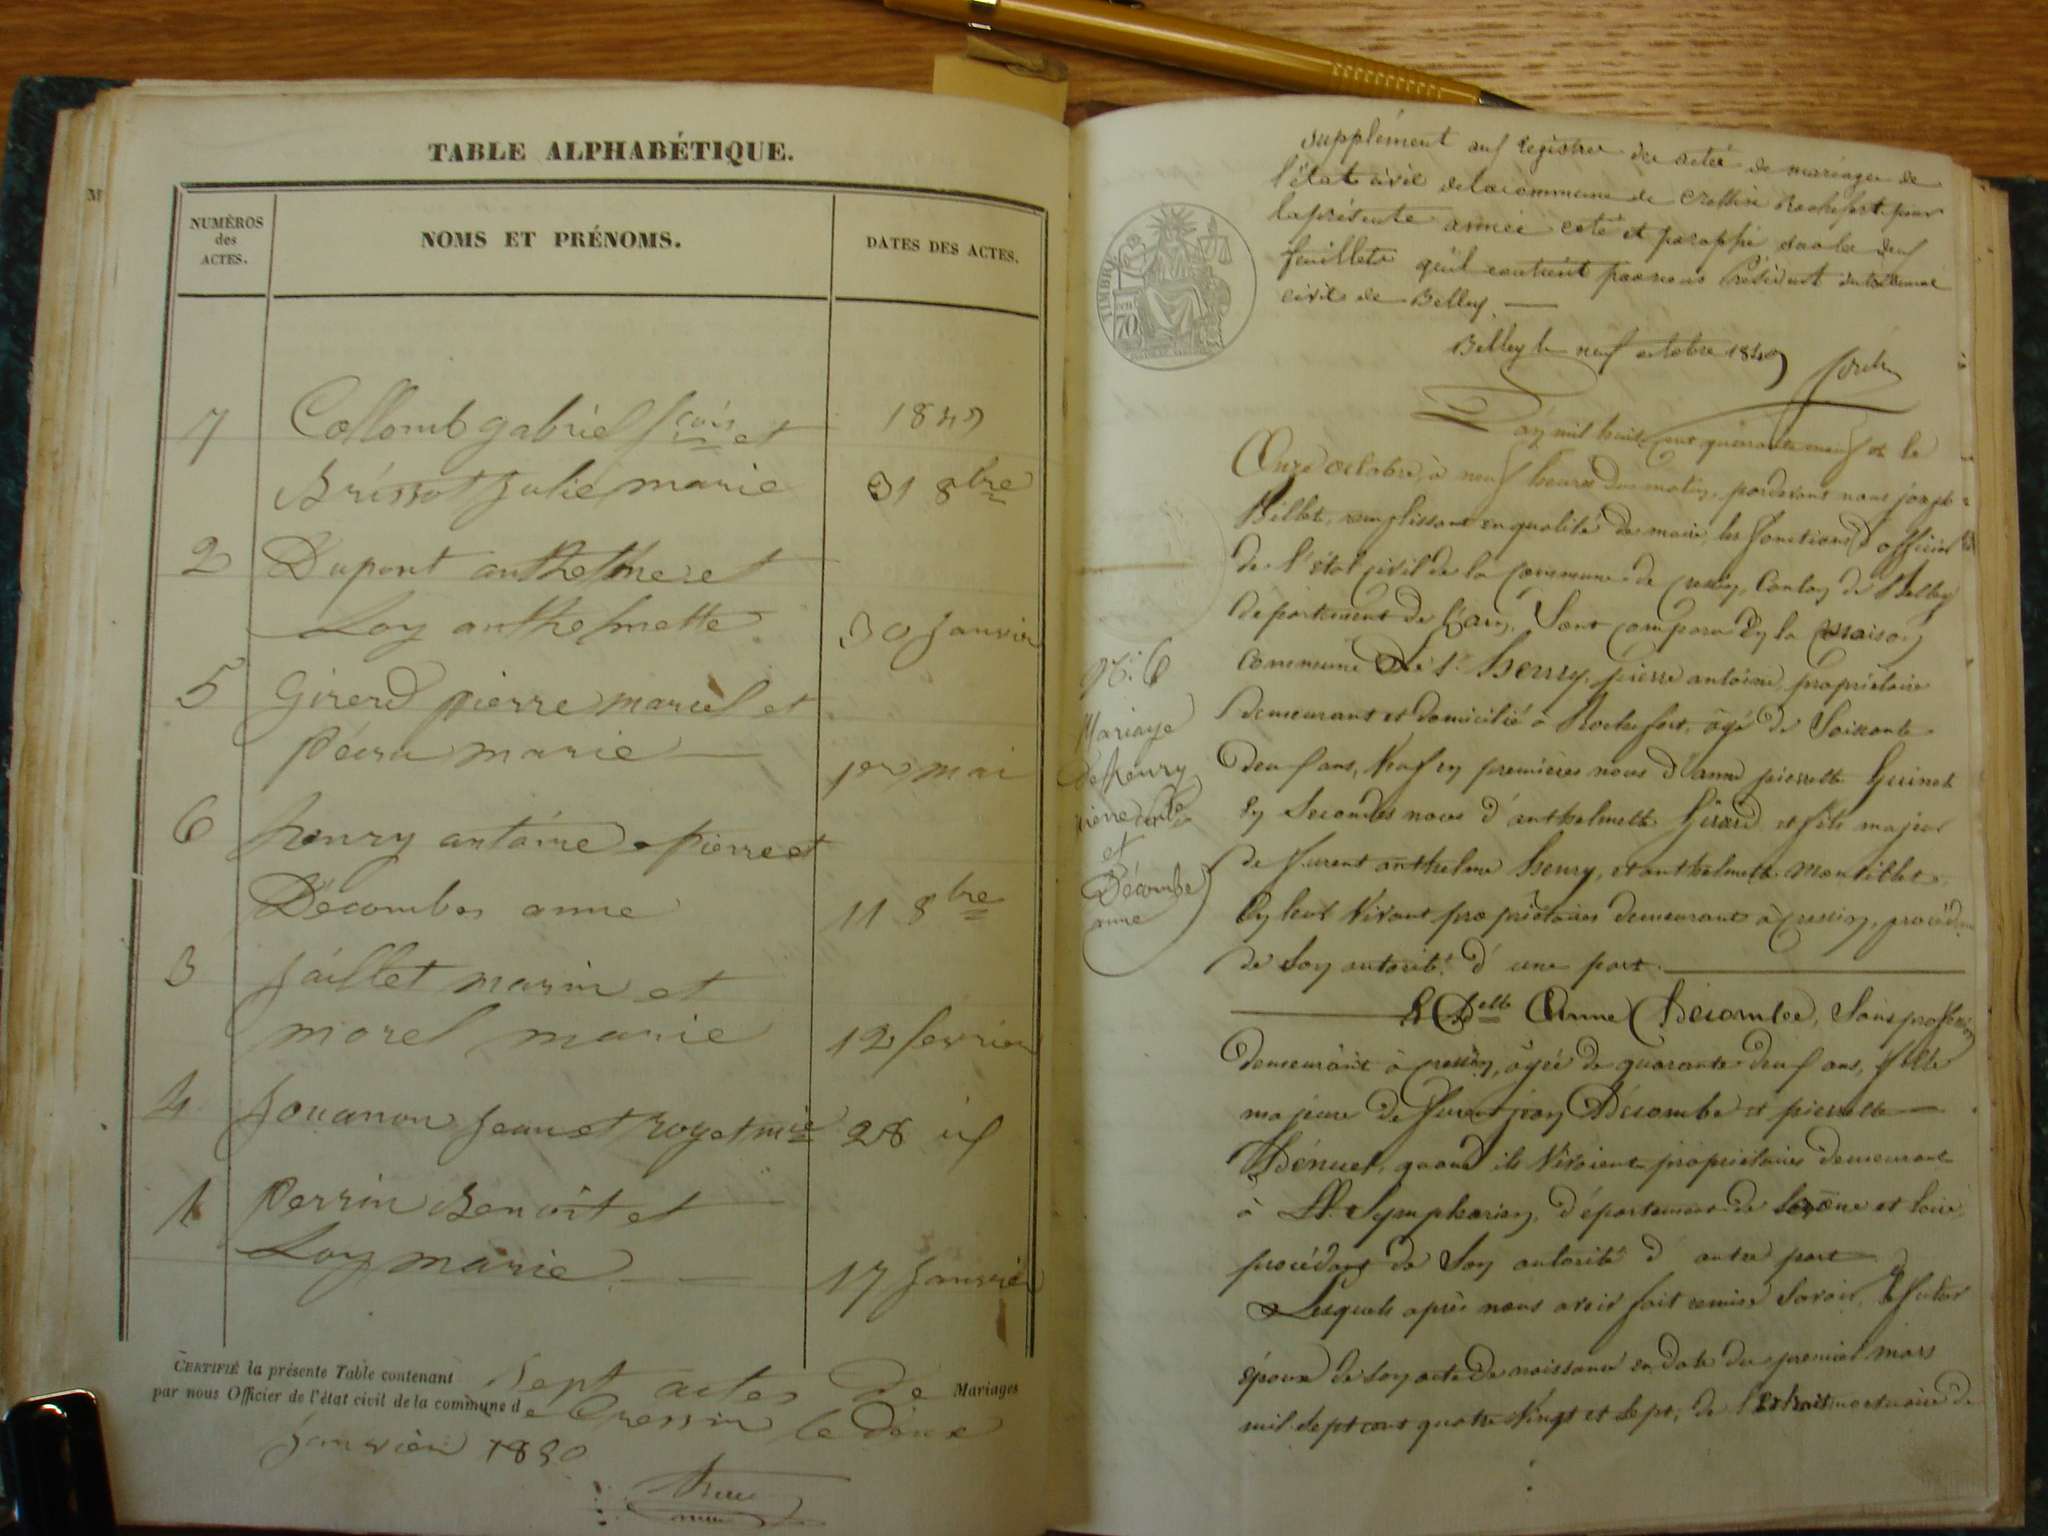 TABLE ALPHABÉTIQUE.
NUMÉROS
des
ACTES.
NOMS ET PRÉNOMS.
DATES DES ACTES.
7 Collomb gabriel fcois et 1849
Brissot Julie marie 31 8bre
2 Dupont anthelme et
Loy anthelmette 30 Janvier
5 Girerd pierre marcel et
Pécru marie 1er mai
6 henry antoine Pierre et
Décombes anne 11 8bre
3 Jaillet marin et
morel marie 12 fevrier
4 Jouanon Jean et Roget mie 28 id
1 Perrin Benoit et
Loy marie 17 Janvier
CERTIFIÉ la présente Table contenant Sept actes de Mariages
par nous Officier de l'état civil de la commune de Cressin le deux
Janvier 1850
supplément aux registres des actes de mariages de
l'état civil de la commune de Cressin Rochefort pour
la présente année coté et paraphé sur les deux
feuillets qu'il contient par nous Président du tribunal
civil de Belley.
Belley le neuf octobre 1849
TIMBRE
70
L'an mil huit cent quarante neuf et le
Onze octobre, à neuf heures du matin, pardevant nous joseph
Billet, remplissant en qualité de maire, les fonctions d'officier
de l'état civil de la commune de Cressin, Canton de Belley
département de l'ain, Sont comparu en la maison
Commune Le Sr henry, pierre antoine, propriétaire
demeurant et domicilié à Rochefort, âgé de Soixante
deux ans, Veuf en premières noces d'anne pierrette Guinet
En Secondes noces d'anthelmette Girard et fils majeur
de furent anthelme henry, et anthelmette Montillet
En leur Vivant propriétaires demeurant à Cressin, procédant
de Son autorité d'une part.
N° 6
Mariage
de henry
pierre antoine
et
Décombe
anne
Et Delle Anne Décombe, Sans profession
demeurant à Cressin, âgée de quarante deux ans, fille
majeure de furent jean Décombe et pierrette
Dénuel, quand ils Vivaient propriétaires demeurant
à St. Symphorien, département de Saône et loire,
procédant de Son autorité d'autre part
Lesquels après nous avoir fait remise Savoir, Le futur
époux de Son acte de naissance en date du premier mars
mil sept cent quatre Vingt et Sept, de l'Extrait mortuaire de